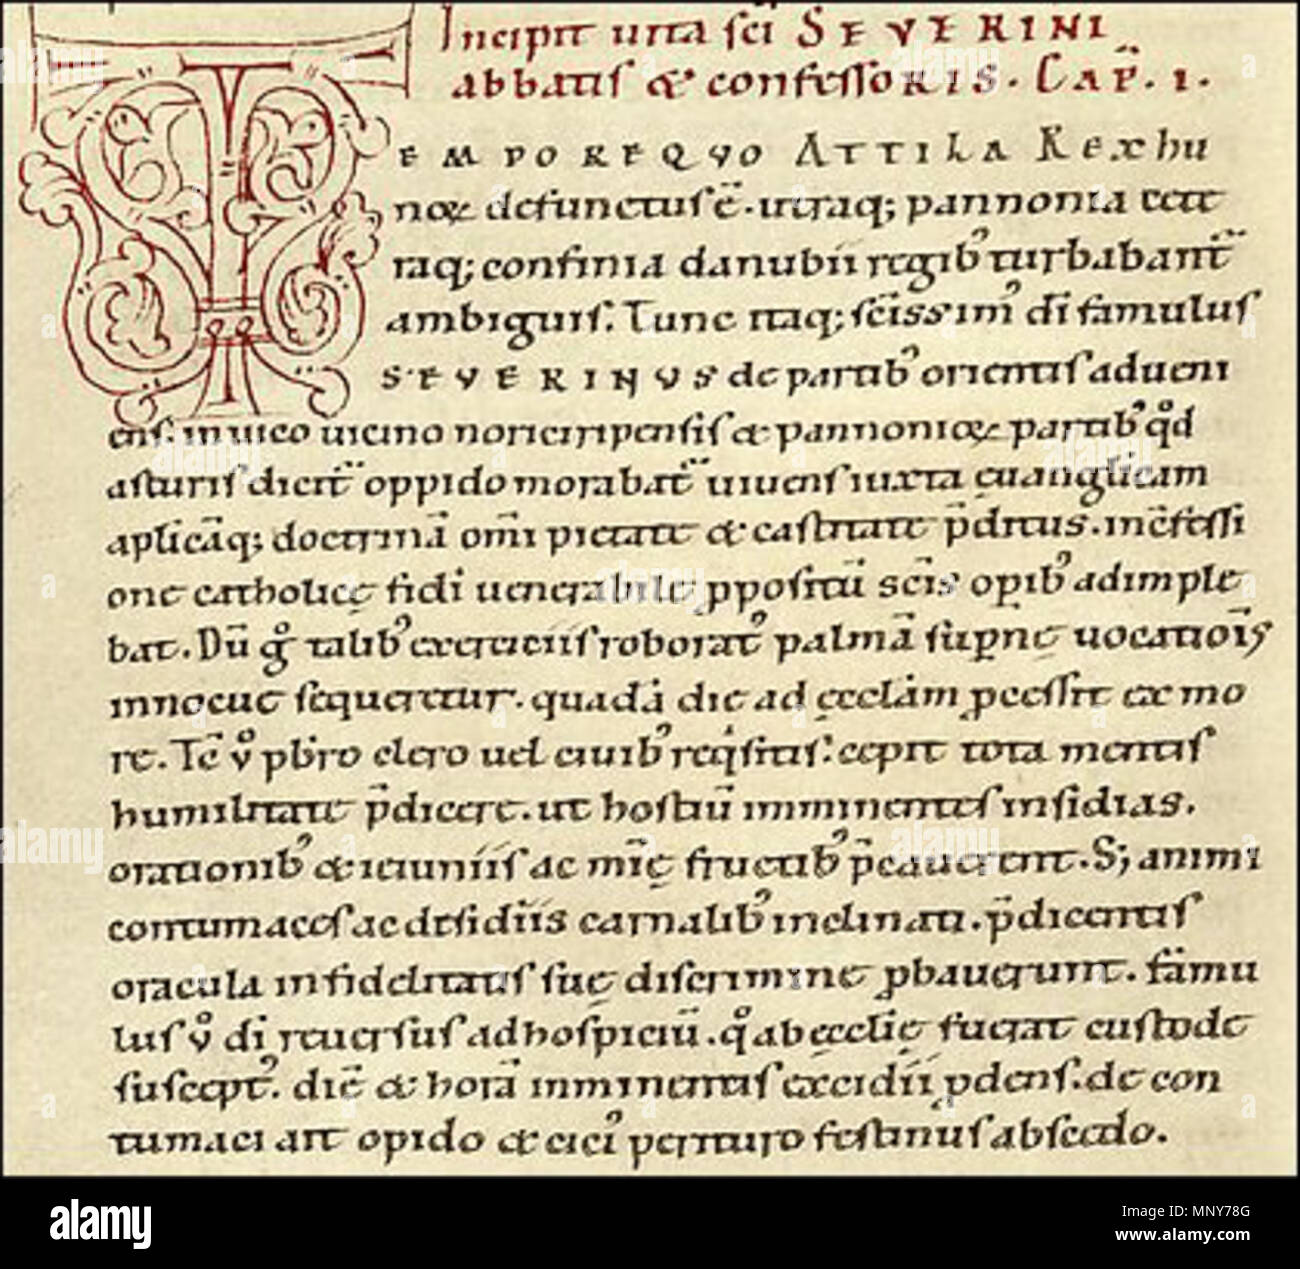 Incipit uita sc̄i SEVERINI
abbatis & confessoRIS. CAP̄. I.
TEMPORE QVO ATTILA Rex hu
noꝝ defunctus ē. utraq; pannonia cete
raq; confinia danubii regib᾽ turbabant᾽
ambiguis. Tunc itaq; sc̄issim᾽ dī famulus
SEVERINVS de partib᾽ orientis adueni
ens. in uico uicino noriciripensis & pannonioꝝ partib᾽ qͦd
asturis dicit᾽ oppido morabat᾽ uiuens iuxta ęuanglicam
aplicāq; doctrinā om̄i pietate & castitate p̄ditus. in c̄fessi
one catholicę fidi uenerabile ꝓpositū sc̄is opib᾽ adimple
bat. Dū gͦ talib᾽ exerciciis roborat᾽ palmā sup̱nę uocatiōis
innocue sequeretur. quadā die ad ęcclam ꝓcessit ex mo
re. Tc̄ vͦ pb̄ro clero uel ciuib᾽ reqͥsitis. cepit tota mentis
humilitate p̄dicere. ut hostiū imminentes insidias.
orationib᾽ & ieiuniis ac mīę fructib᾽ p̄cauerent. S; animi
contumaces ac desidiis carnalib᾽ inclinati. p̄dicentis
oracula infidelitatis suę discrimine ꝓbauerunt. famu
lus vͦ dī reuersus ad hospiciū. qͦ ab ęcclię fuerat custode
suscept᾽. diē & horā imminentis excidii ꝓdens. de con
tumaci ait opido & cici᾽ perituro festinus abscedo.
alamy
Image ID: MNY78G
www.alamy.com